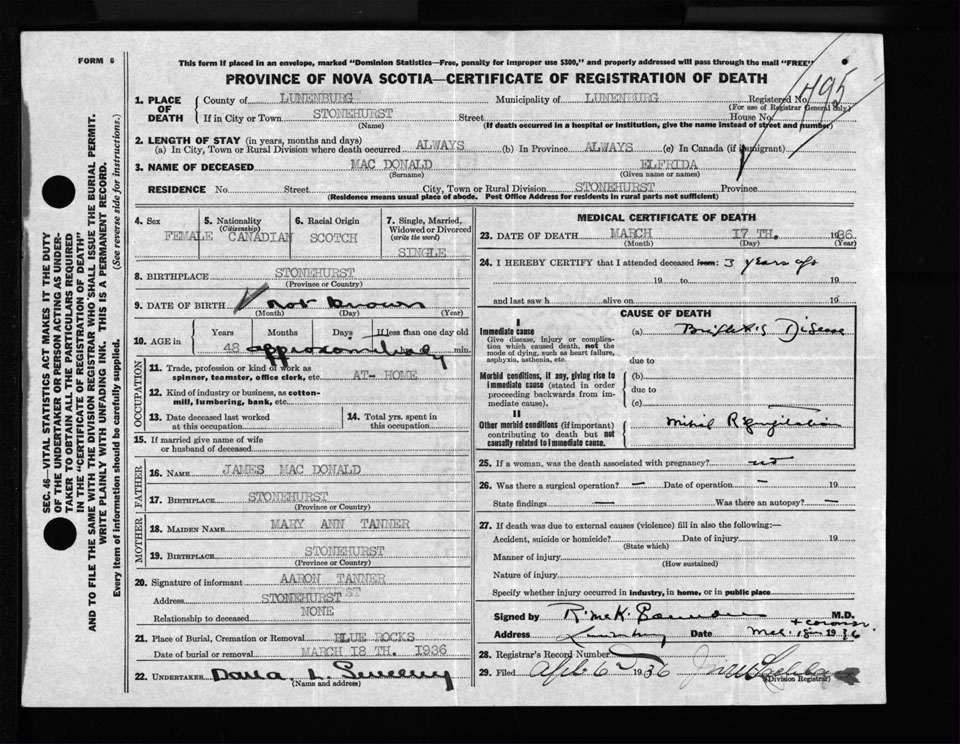 FORM 6
This form if placed in an envelope, marked "Dominion Statistics—Free, penalty for improper use $300," and properly addressed will pass through the mail "FREE"
PROVINCE OF NOVA SCOTIA—CERTIFICATE OF REGISTRATION OF DEATH
495
1. PLACE OF DEATH County of LUNENBURG Municipality of LUNENBURG Registered No.
(For use of Registrar General only.)
If in City or Town STONEHURST Street House No.
(Name) (If death occurred in a hospital or institution, give the name instead of street and number)
2. LENGTH OF STAY (in years, months and days)
(a) In City, Town or Rural Division where death occurred ALWAYS (b) In Province ALWAYS (c) In Canada (if immigrant)
3. NAME OF DECEASED MAC DONALD ELFRIDA
(Surname) (Given name or names)
RESIDENCE No. Street City, Town or Rural Division STONEHURST Province
(Residence means usual place of abode. Post Office Address for residents in rural parts not sufficient)
4. Sex 5. Nationality (Citizenship) 6. Racial Origin 7. Single, Married, Widowed or Divorced (write the word)
FEMALE CANADIAN SCOTCH SINGLE
8. BIRTHPLACE STONEHURST
(Province or Country)
9. DATE OF BIRTH not known
(Month) (Day) (Year)
10. AGE in Years Months Days If less than one day old
48 approximately min.
OCCUPATION
11. Trade, profession or kind of work as spinner, teamster, office clerk, etc. AT- HOME
12. Kind of industry or business, as cotton-mill, lumbering, bank, etc.
13. Date deceased last worked at this occupation
14. Total yrs. spent in this occupation
15. If married give name of wife or husband of deceased
FATHER
16. NAME JAMES MAC DONALD
17. BIRTHPLACE STONEHURST
(Province or Country)
MOTHER
18. MAIDEN NAME MARY ANN TANNER
19. BIRTHPLACE STONEHURST
(Province or Country)
20. Signature of informant AARON TANNER
Address STONEHURST
Relationship to deceased NONE
21. Place of Burial, Cremation or Removal BLUE ROCKS
Date of burial or removal MARCH 18 TH. 1936
22. UNDERTAKER
(Name and address)
MEDICAL CERTIFICATE OF DEATH
23. DATE OF DEATH MARCH 17 TH. 1936
(Month) (Day) (Year)
24. I HEREBY CERTIFY that I attended deceased from: 3 years ago
19 to 19
and last saw h alive on 19
CAUSE OF DEATH
I
Immediate cause (a) Bright's Disease
Give disease, injury or complication which caused death, not the mode of dying, such as heart failure, asphyxia, asthenia, etc.
due to
Morbid conditions, if any, giving rise to immediate cause (stated in order proceeding backwards from immediate cause).
(b)
due to
(c)
II
Other morbid conditions (if important) contributing to death but not causally related to immediate cause. Mitral Regurgitation
25. If a woman, was the death associated with pregnancy? not
26. Was there a surgical operation? — Date of operation — 19
State findings — Was there an autopsy? —
27. If death was due to external causes (violence) fill in also the following:—
Accident, suicide or homicide? Date of injury 19
(State which)
Manner of injury
(How sustained)
Nature of injury
Specify whether injury occurred in industry, in home, or in public place
Signed by M.D.
+ coroner
Address Lunenburg Date Mch. 18 1936
28. Registrar's Record Number
29. Filed April 6 1936
(Division Registrar)
SEC. 46—VITAL STATISTICS ACT MAKES IT THE DUTY
OF THE UNDERTAKER OR PERSON ACTING AS UNDER-
TAKER TO OBTAIN ALL THE PARTICULARS REQUIRED
IN THE "CERTIFICATE OF REGISTRATION OF DEATH"
AND TO FILE THE SAME WITH THE DIVISION REGISTRAR WHO SHALL ISSUE THE BURIAL PERMIT.
WRITE PLAINLY WITH UNFADING INK. THIS IS A PERMANENT RECORD.
Every item of information should be carefully supplied. (See reverse side for instructions.)